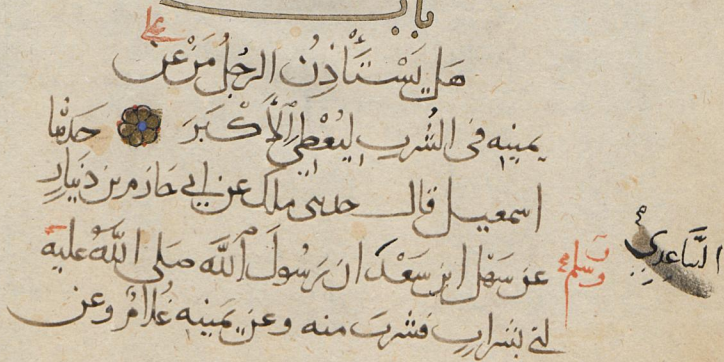 باب
هل يَسْتَأْذِنُ الرجُلُ مَنْ عن
يمينِه فى الشُربِ لِيُعْطِيَ الْأَكْبَرَ حدثنا
اسمعيل قال حدثنى ملك عن ابي حازم بن دينار
عن سَهْل ابن سَعْد ان رَسُولَ اللَّه صلى اللَّهُ عليه
وسلم
السَّاعِدِي
اتى بشرابٍ فشربَ منه وعن يَمينِه غُلامٌ وعن